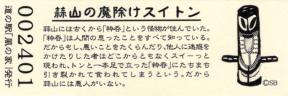 蒜山の魔除けスイトン
蒜山には古くから「神呑」という怪物が住んでいた。
「神呑」は人間の思ったことをすべて知っている。
だからもし、悪いことをたくらんだり、他人に迷惑を
かけたりした者はどこからともなくスイーっと
現われ、トンと一本足で立った「神呑」にたちまち
引き裂かれて食われてしまうという。だから
蒜山には悪人がいないのだ。
0002401
道の駅「風の家」発行
©SB